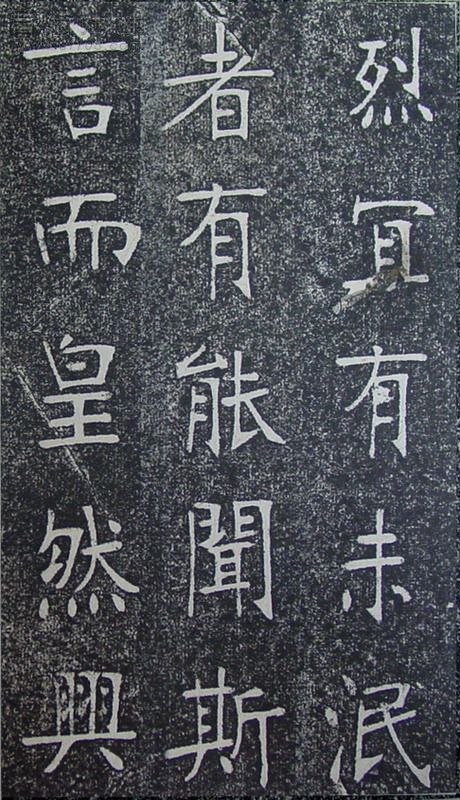 烈冝有未泯
者有能聞斯
言而皇然興